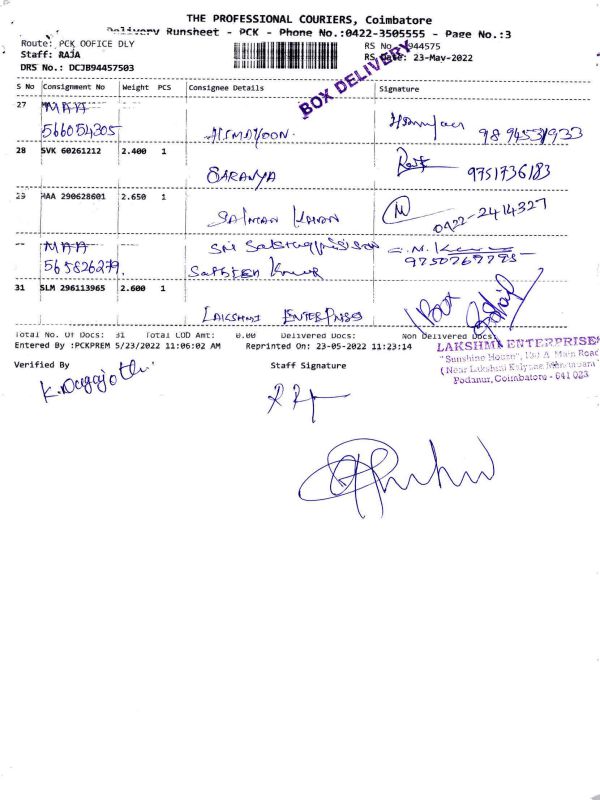 THE PROFESSIONAL COURIERS, Coimbatore
Delivery Runsheet - PCK - Phone No.:0422-3505555 - Page No.:3
Route: PCK OOFICE DLY
RS No 944575
Staff: RAJA
RS Date: 23-May-2022
DRS No.: DCJB94457503
BOX DELIVERY
S No Consignment No Weight PCS Consignee Details Signature
27 MAA
566054305 9894531933
28 SVK 60261212 2.400 1
SARANYA 9751736183
29 HAA 290628601 2.650 1
SALMAN KHAN 0422-2414327
MAA Sri
565826279.
9750769795
31 SLM 296113965 2.600 1
LAKSHMI ENTERPRISES 1 Box
Total No. Of Docs: 31 Total COD Amt: 0.00 Delivered Docs: Non Delivered Docs:
Entered By :PCKPREM 5/23/2022 11:06:02 AM Reprinted On: 23-05-2022 11:23:14
LAKSHMI ENTERPRISES
"Sunshine House", Main Road
(Near Lakshmi Kalyana Mandapam)
Podanur, Coimbatore - 641 023
Verified By Staff Signature